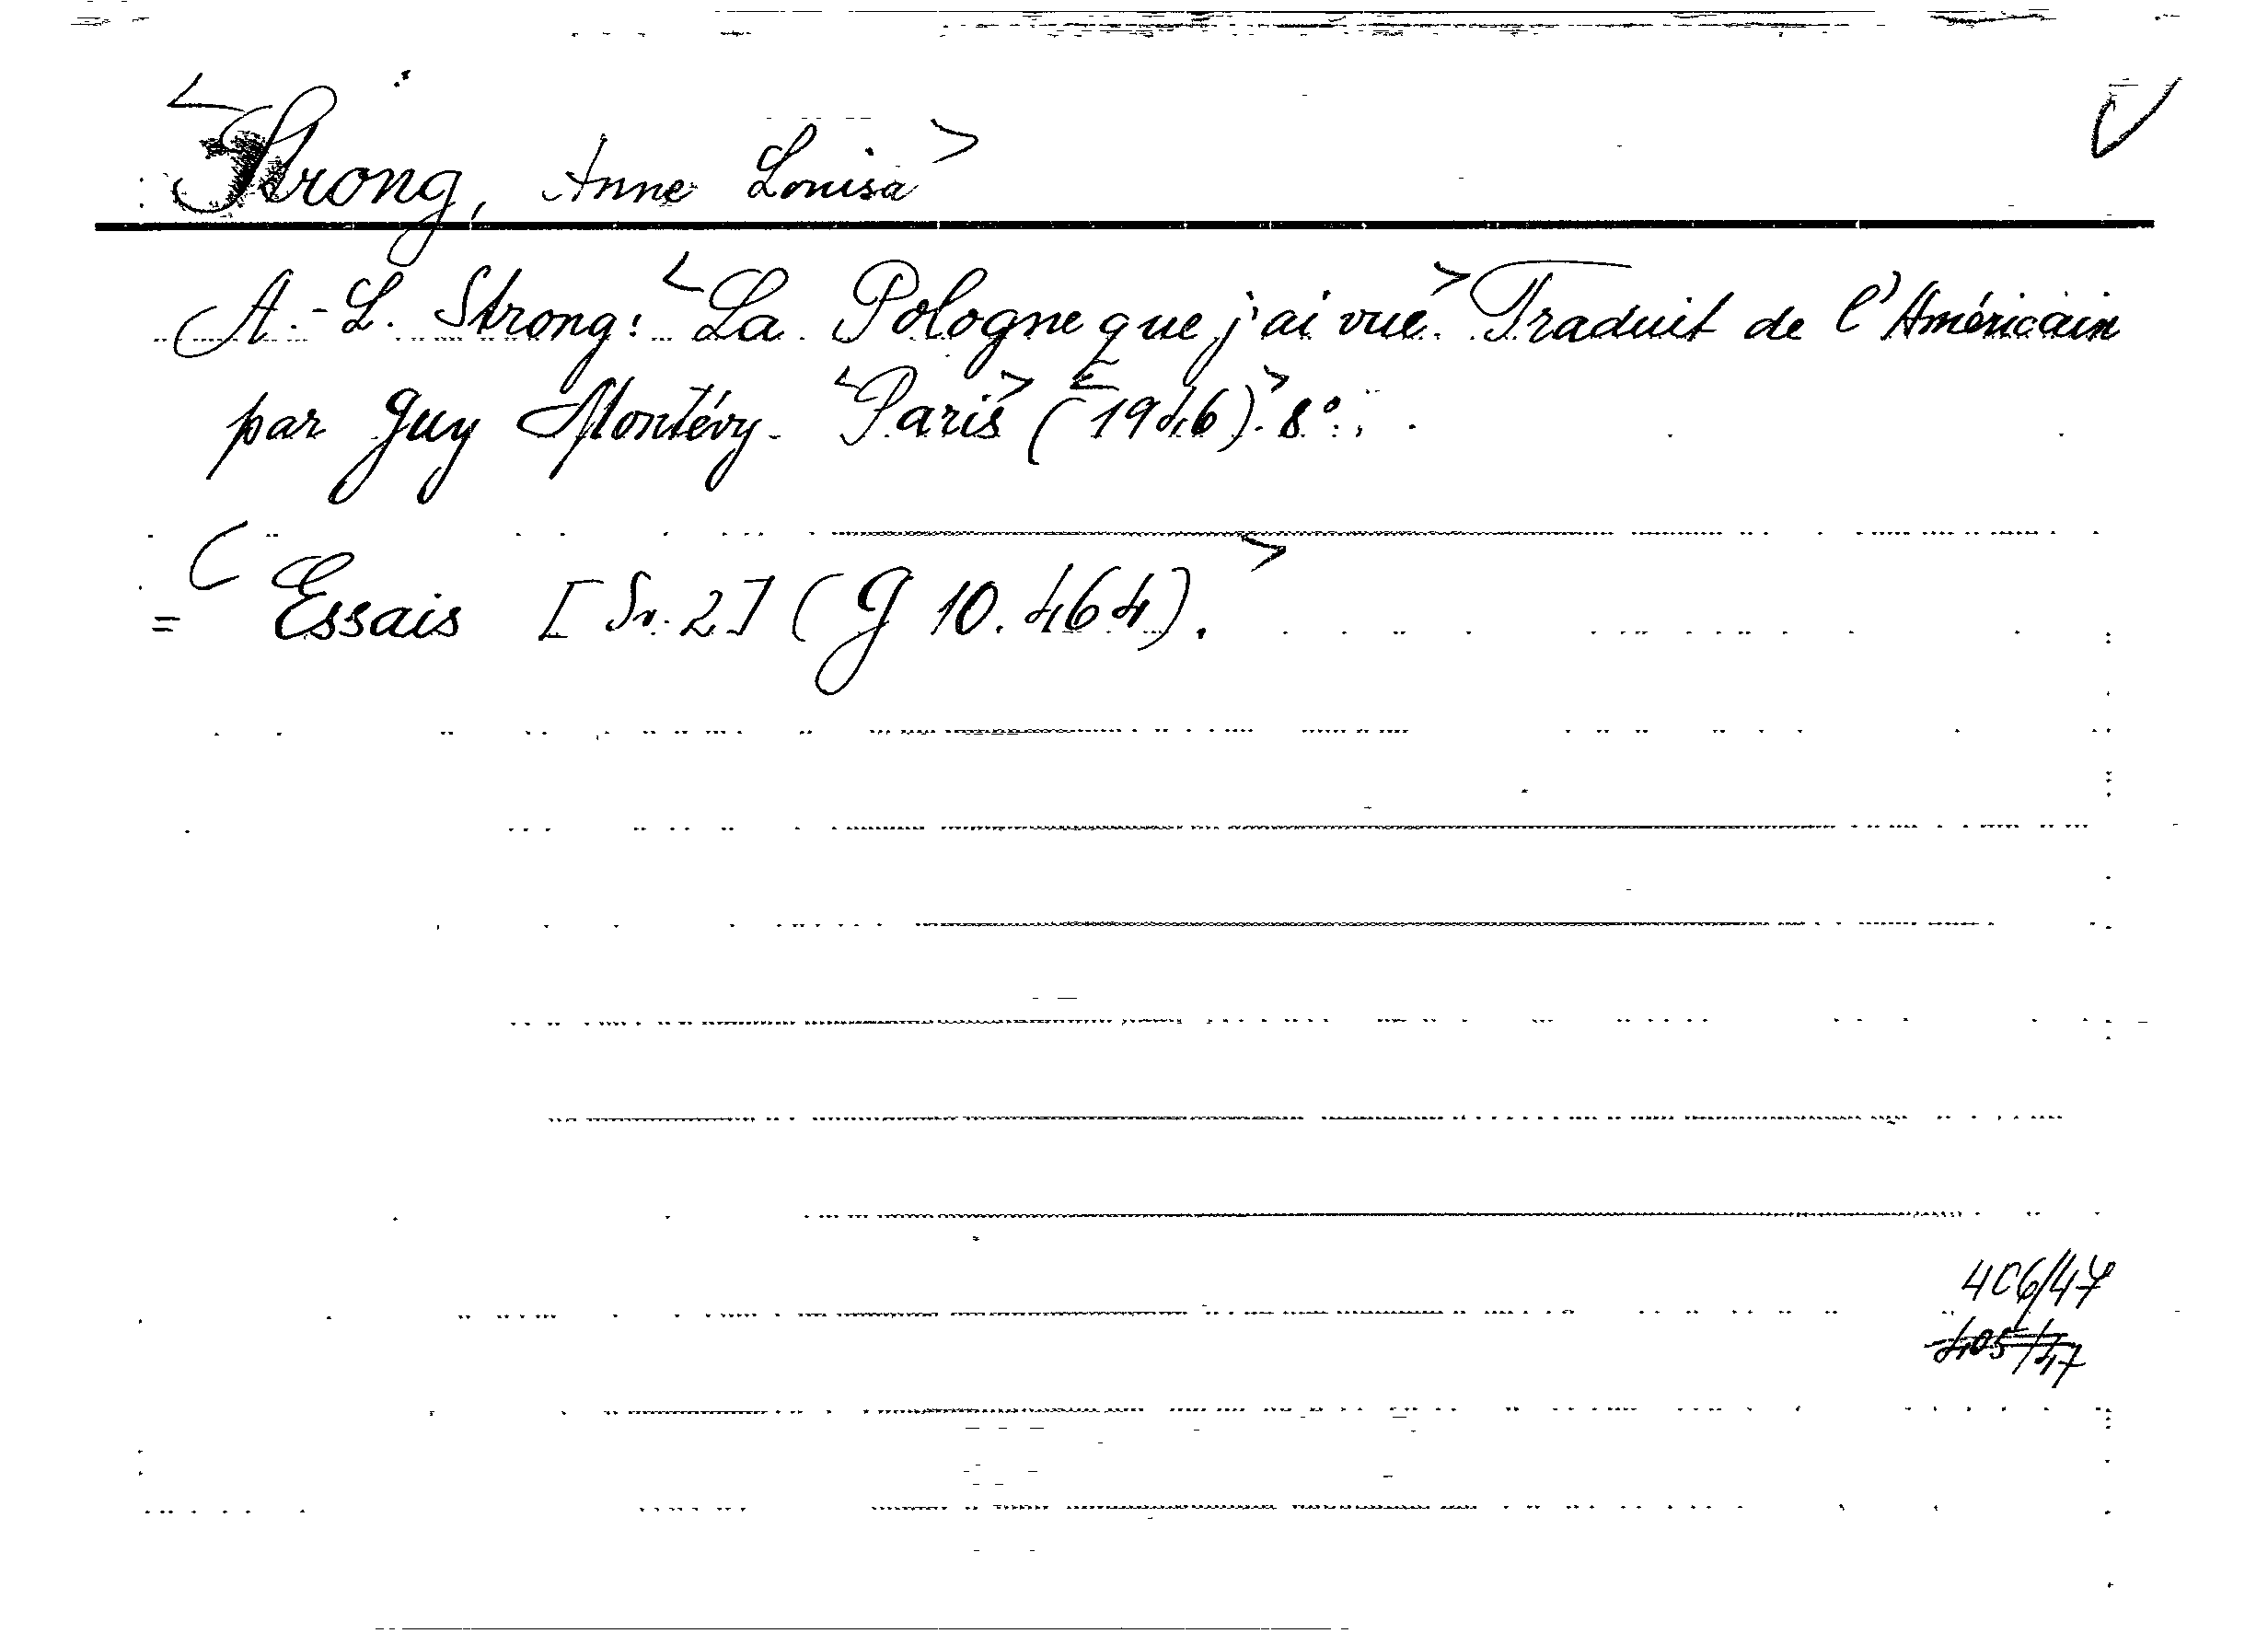 <Strong, Anne Louisa>
A.-L. Strong: <La Pologne que j'ai vue.> Traduit de l'Américain
par Guy Montévy. <Paris> (<1946).> 8°.
= <Essais [Nr. 2] (G 10.464).>
406/47
405/47